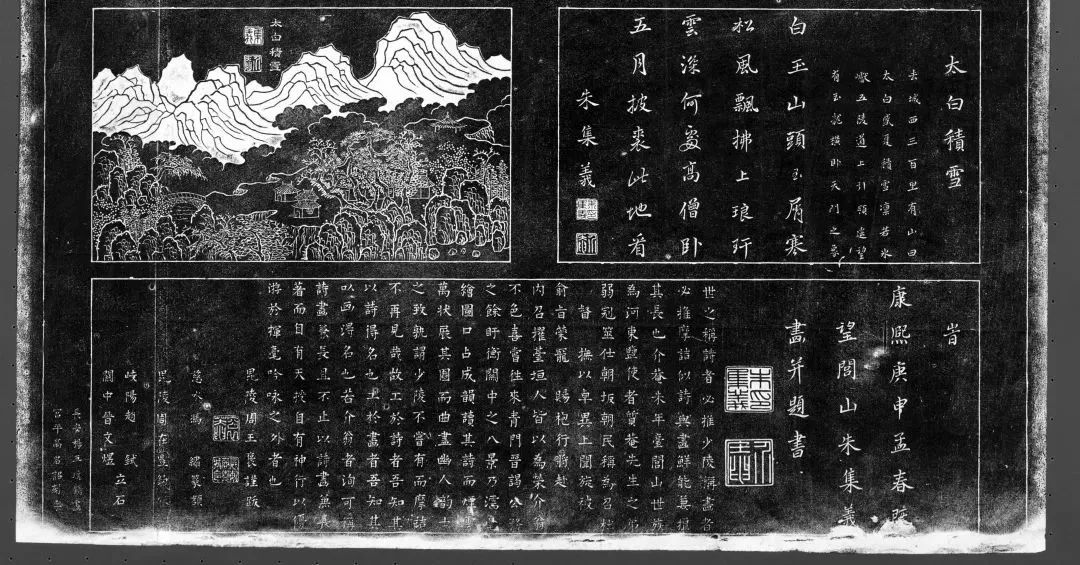 太白積雪
太白積雪
去城西三百里有山曰
太白盛夏積雪凛若氷
巖五陵道上引領遠望
白玉山頭玉屑寒
松風飄拂上琅玕
雲深何處高僧卧
五月披裘此地看
朱集義
康熙庚申孟春
望閭山朱集義
畫并題書
世之稱詩者必推少陵稱畫者
必推摩詰似詩與畫鮮能兼擅
其長也介菴朱年臺閭山世族
為河東鹽使者賢菴先生之弟
弱冠筮仕朝坂朝民稱為召杜
督撫以卓異上聞旋被
俞旨榮寵賜袍行將赴
内召擢臺垣人皆以為榮介翁
不色喜嘗往來青門晉謁公務
之餘盱衡關中之八景乃濡毫
繪圖口占成韻讀其詩而煙雲
萬狀展其圖而曲盡幽人韵士
之致孰謂少陵不嘗有而摩詰
不再見哉故工於詩者吾知其
以詩得名也工於畫者吾知其
以画得名也若介翁者洵可稱
詩畫兼長且不止以詩畫兼長
著而自有天授自有神行以優
游於揮毫吟咏之外者也
毘陵周王褒謹跋
慈水馮繡篆額
毘陵周在豐
岐陽趙弑
關中晉文煜立石